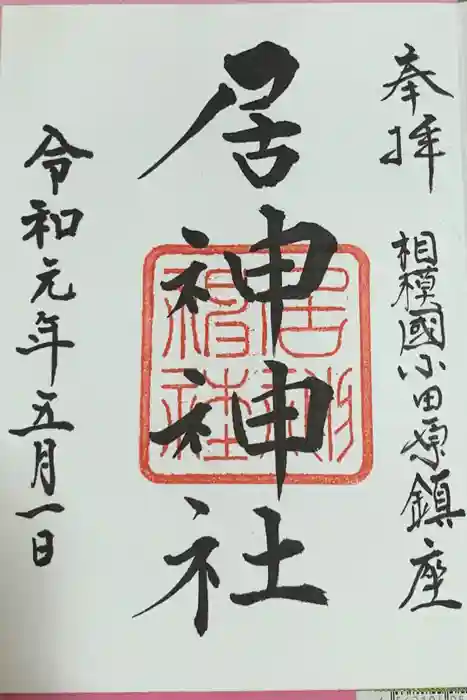 奉拝
相模國小田原鎮座
居神神社
令和元年五月一日